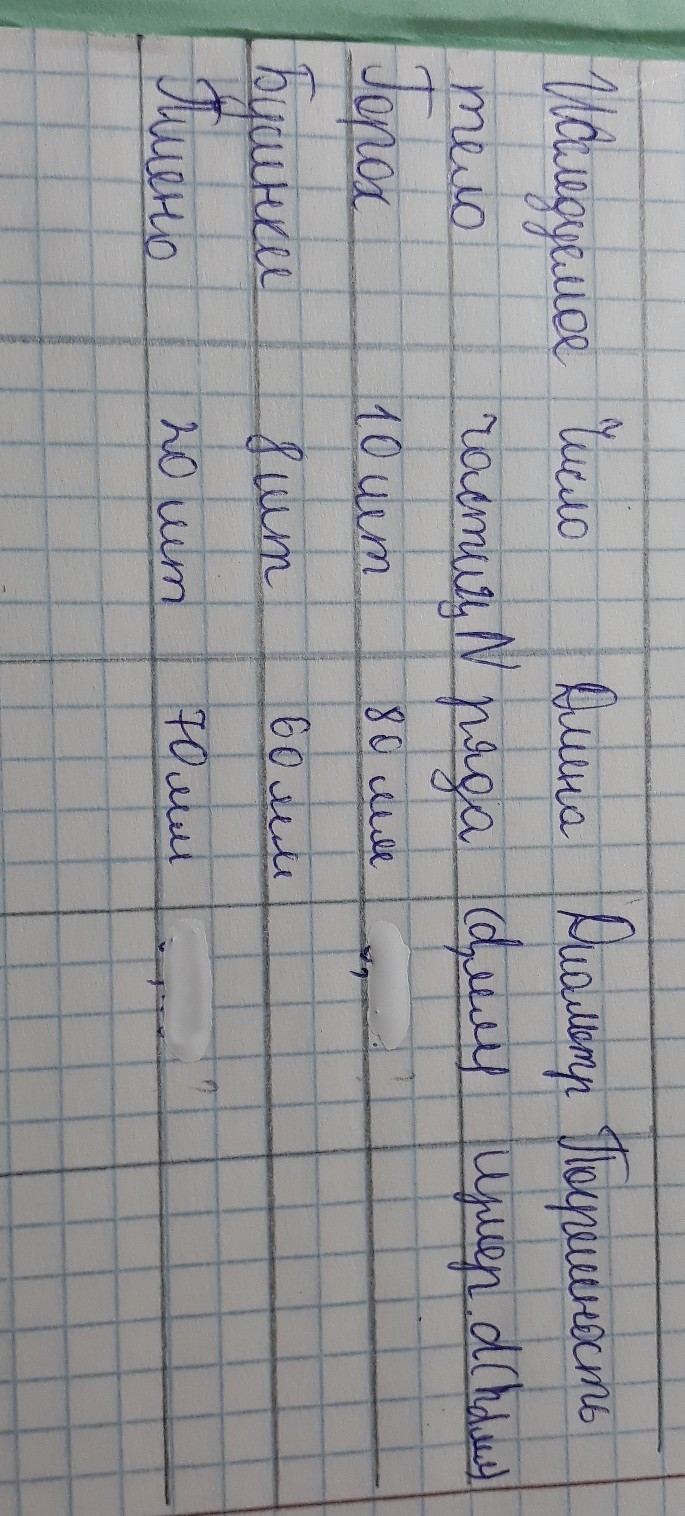 Исследуемое Число Длина Диаметр Погрешность
тело частиц N ряда (d, мм) измер. d(hd, мм)
Горох 10 шт 80 мм ?
Бусинки 8 шт 60 мм
Пшено 20 шт 70 мм ?